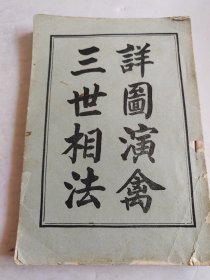 詳圖演禽
三世相法